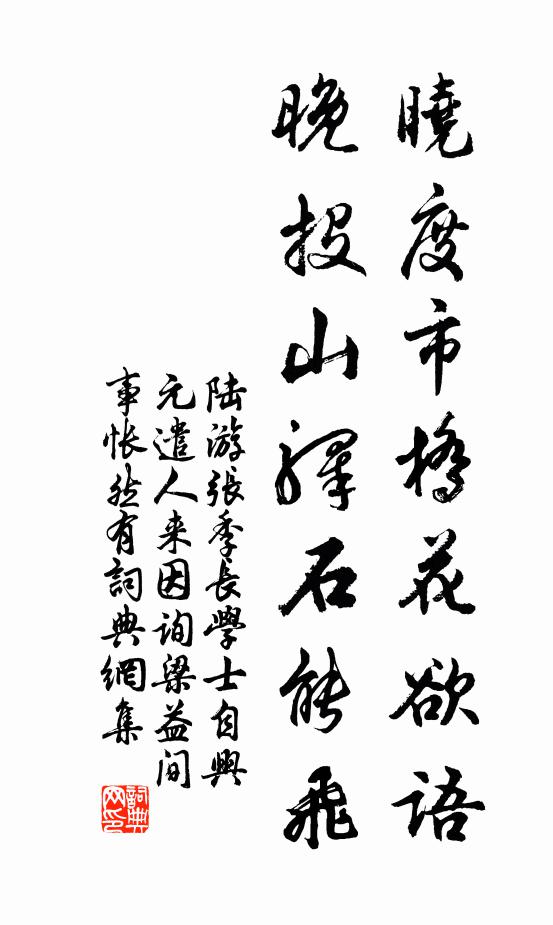 曉度市橋花欲語
晚投山驛石能飛
陆游張季長學士自興
元遣人来因詢梁益间
事悵然有詞典網集
詞典
网印